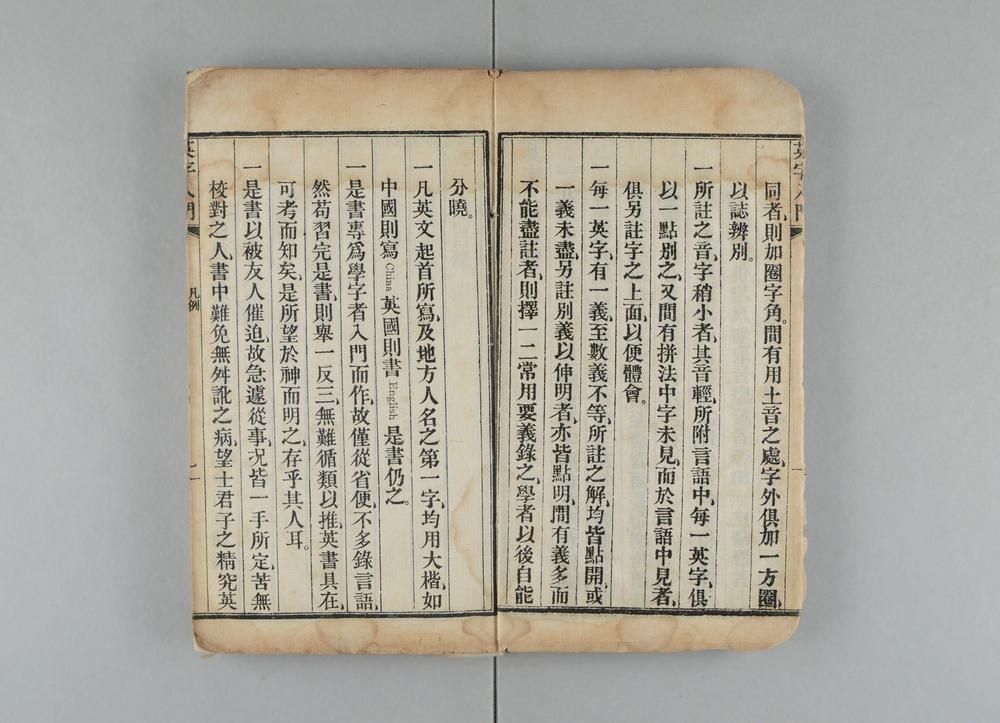 英字入門
同者、則加圈字角。間有用土音之處、字外俱加一方圈、
以誌辨別。
一所註之音、字稍小者、其音輕、所附言語中、每一英字、俱
以一點別之、又間有拼法中字未見、而於言語中見者、
俱另註字之上面、以便體會。
一每一英字、有一義、至數義不等、所註之解、均皆點開、或
一義未盡、另註別義以伸明者、亦皆點明、間有義多而
不能盡註者、則擇一二常用要義錄之、學者以後自能
分曉。
一凡英文起首所寫、及地方人名之第一字、均用大楷、如
中國則寫 China 英國則書 English 是書仍之。
一是書專爲學字者入門而作、故僅從省便、不多錄言語、
然苟習完是書、則舉一反三、無難循類以推、英書具在、
可考而知矣、是所望於神而明之、存乎其人耳。
一是書以被友人催迫、故急遽從事、况皆一手所定、苦無
校對之人、書中難免無舛訛之病、望士君子之精究英
英字入門
凡例